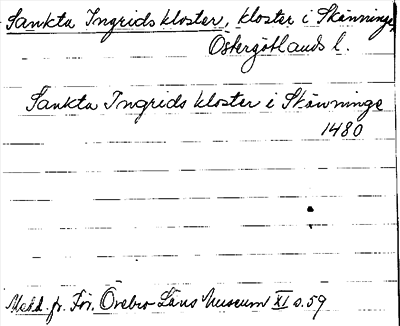 Sankta Ingrids kloster, kloster i Skänninge,
Östergötlands l.
Sankta Ingrids kloster i Skäwninge
1480
Medd. fr. För. Örebro Läns Museum XI s. 59